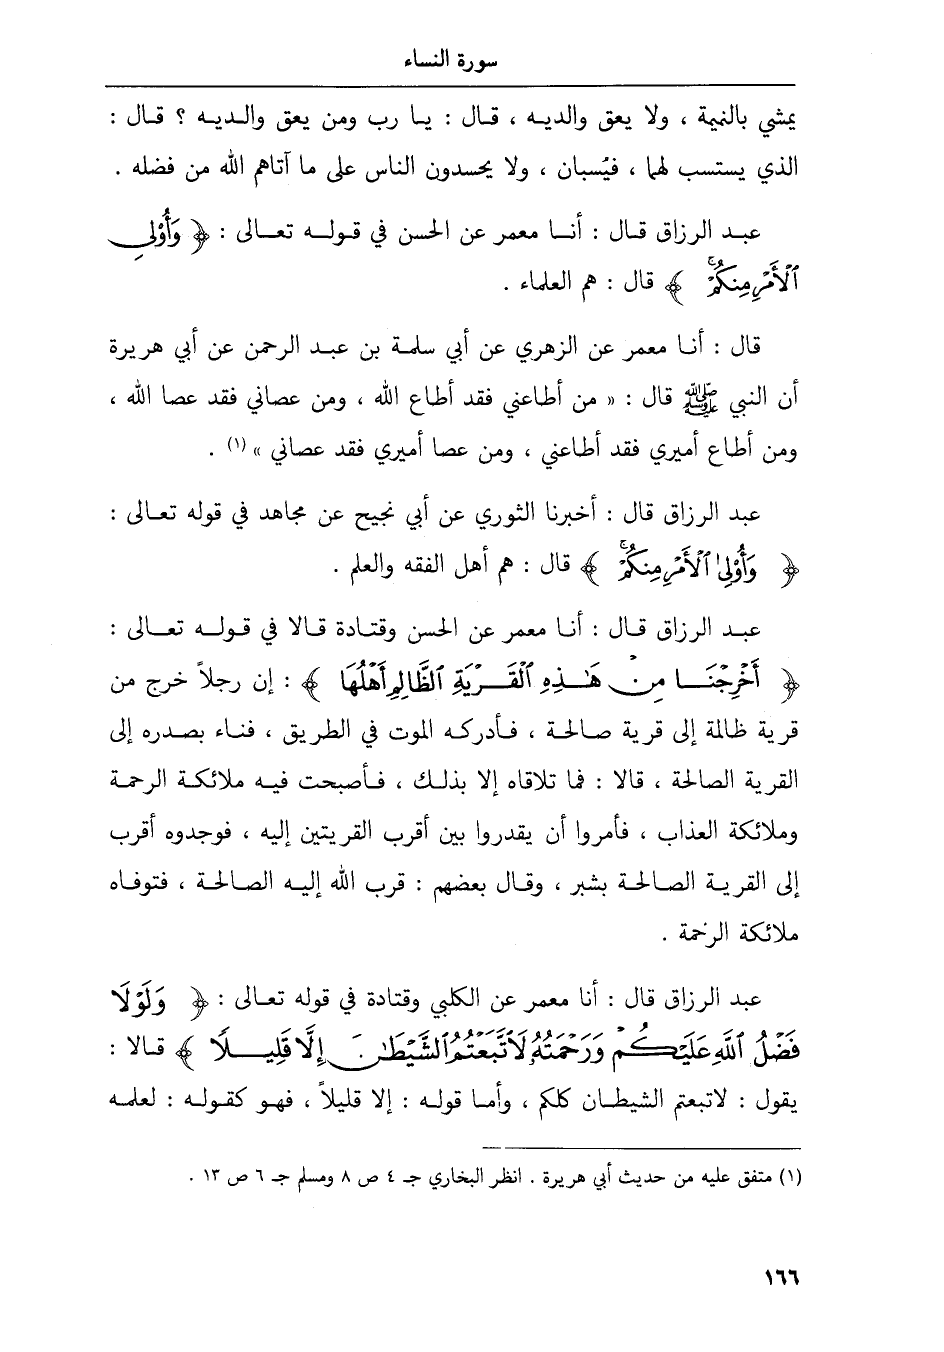 سورة النساء
يمشي بالنميمة ، ولا يعق والديه ، قال : يا رب ومن يعق والديه ؟ قال :
الذي يستسب لهما ، فيُسبان ، ولا يحسدون الناس على ما آتاهم الله من فضله .
عبد الرزاق قال : أنا معمر عن الحسن في قوله تعالى : ﴿ وَأُوْلِي
ٱلۡأَمۡرِ مِنكُمۡۖ ﴾ قال : هم العلماء .
قال : أنا معمر عن الزهري عن أبي سلمة بن عبد الرحمن عن أبي هريرة
أن النبي ﷺ قال : « من أطاعني فقد أطاع الله ، ومن عصاني فقد عصا الله ،
ومن أطاع أميري فقد أطاعني ، ومن عصا أميري فقد عصاني » (١) .
عبد الرزاق قال : أخبرنا الثوري عن أبي نجيح عن مجاهد في قوله تعالى :
﴿ وَأُوْلِي ٱلۡأَمۡرِ مِنكُمۡۖ ﴾ قال : هم أهل الفقه والعلم .
عبد الرزاق قال : أنا معمر عن الحسن وقتادة قالا في قوله تعالى :
﴿ أَخۡرِجۡنَا مِنۡ هَٰذِهِ ٱلۡقَرۡيَةِ ٱلظَّالِمِ أَهۡلُهَا ﴾ : إن رجلاً خرج من
قرية ظالمة إلى قرية صالحة ، فأدركه الموت في الطريق ، فناء بصدره إلى
القرية الصالحة ، قالا : فما تلاقاه إلا بذلك ، فأصبحت فيه ملائكة الرحمة
وملائكة العذاب ، فأمروا أن يقدروا بين أقرب القريتين إليه ، فوجدوه أقرب
إلى القرية الصالحة بشبر ، وقال بعضهم : قرب الله إليه الصالحة ، فتوفاه
ملائكة الرحمة .
عبد الرزاق قال : أنا معمر عن الكلبي وقتادة في قوله تعالى : ﴿ وَلَوۡلَا
فَضۡلُ ٱللَّهِ عَلَيۡكُمۡ وَرَحۡمَتُهُۥ لَٱتَّبَعۡتُمُ ٱلشَّيۡطَٰنَ إِلَّا قَلِيلٗا ﴾ قالا :
يقول : لاتبعتم الشيطان كلكم ، وأما قوله : إلا قليلاً ، فهو كقوله : لعلمه
(١) متفق عليه من حديث أبي هريرة . انظر البخاري جـ ٤ ص ٨ ومسلم جـ ٦ ص ١٣ .
١٦٦